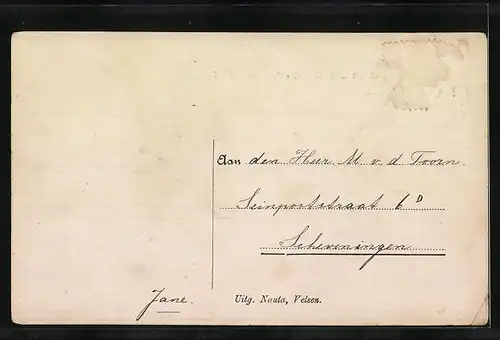 Aan den Heer M v. d. Toorn.
Seinpoststraat 6 D
Scheveningen
Jane.
Uitg. Nauta, Velsen.